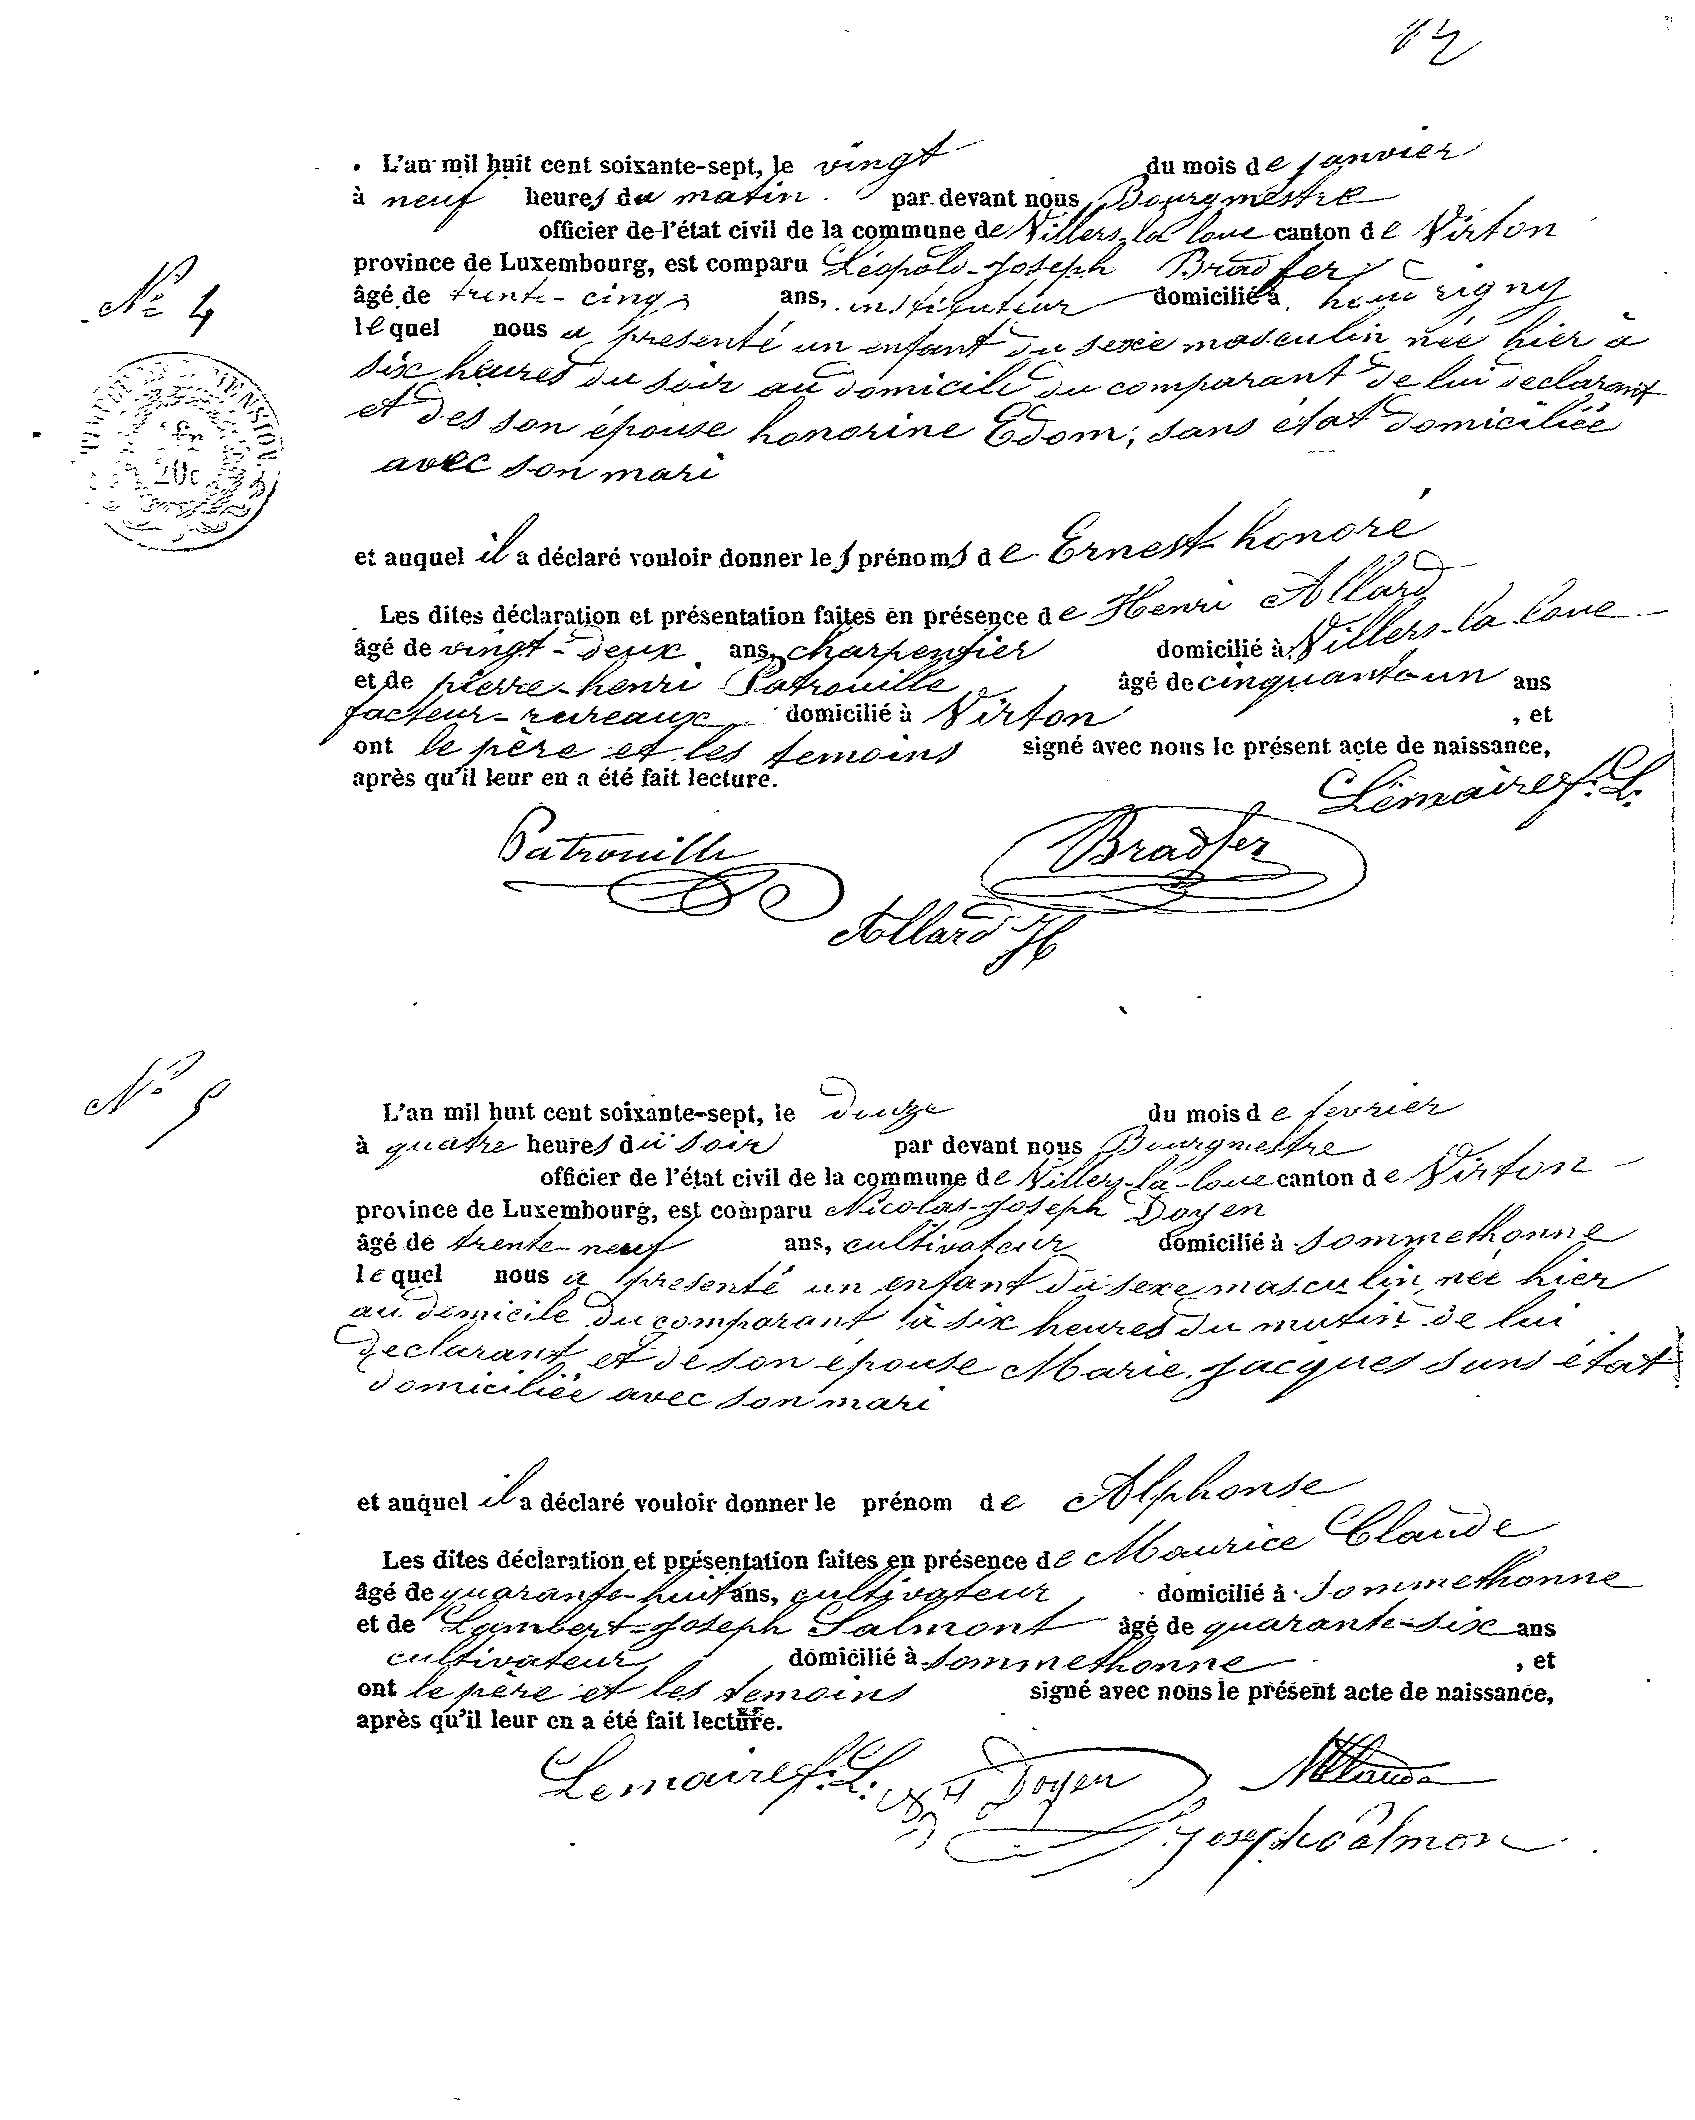 L'an mil huit cent soixante-sept, le vingt du mois de janvier
à neuf heures du matin par devant nous Bourgmestre
officier de l'état civil de la commune de Villers-la-loue canton de Virton
province de Luxembourg, est comparu Léopold-Joseph Bradfer
N° 4
âgé de trente-cinq ans, instituteur domicilié à houdrigny
lequel nous a presenté un enfant du sexe masculin née hier à
six heures du soir au domicile du comparant de lui declarant
et des son épouse honorine Edom, sans état domiciliée
avec son mari
20c
et auquel il a déclaré vouloir donner les prénoms de Ernest honoré
Les dites déclaration et présentation faites en présence de Henri Allard
âgé de vingt-deux ans, charpentier domicilié à Villers-la loue
et de pierre-henri Patrouille âgé de cinquante-un ans
facteur-rureaux domicilié à Virton , et
ont le père et les temoins signé avec nous le présent acte de naissance,
après qu'il leur en a été fait lecture.
Lemaire f. L.
Patrouille Bradfer
Allard H
N° 5
L'an mil huit cent soixante-sept, le douze du mois de fevrier
à quatre heures du soir par devant nous Bourgmestre
officier de l'état civil de la commune de Villers-la-loue canton de Virton
province de Luxembourg, est comparu Nicolas-Joseph Doyen
âgé de trente-neuf ans, cultivateur domicilié à Sommethonne
lequel nous a presenté un enfant du sexe masculin née hier
au domicile du comparant à six heures du matin de lui
declarant et de son épouse Marie Jacques sans état
domiciliée avec son mari
et auquel il a déclaré vouloir donner le prénom de Alphonse
Les dites déclaration et présentation faites en présence de Maurice Claude
âgé de quarante-huit ans, cultivateur domicilié à Sommethonne
et de Lambert-Joseph Salmont âgé de quarante-six ans
cultivateur domicilié à Sommethonne , et
ont le père et les temoins signé avec nous le présent acte de naissance,
après qu'il leur en a été fait lecture.
Lemaire f. L. Doyen MClaude
Joseph Salmon